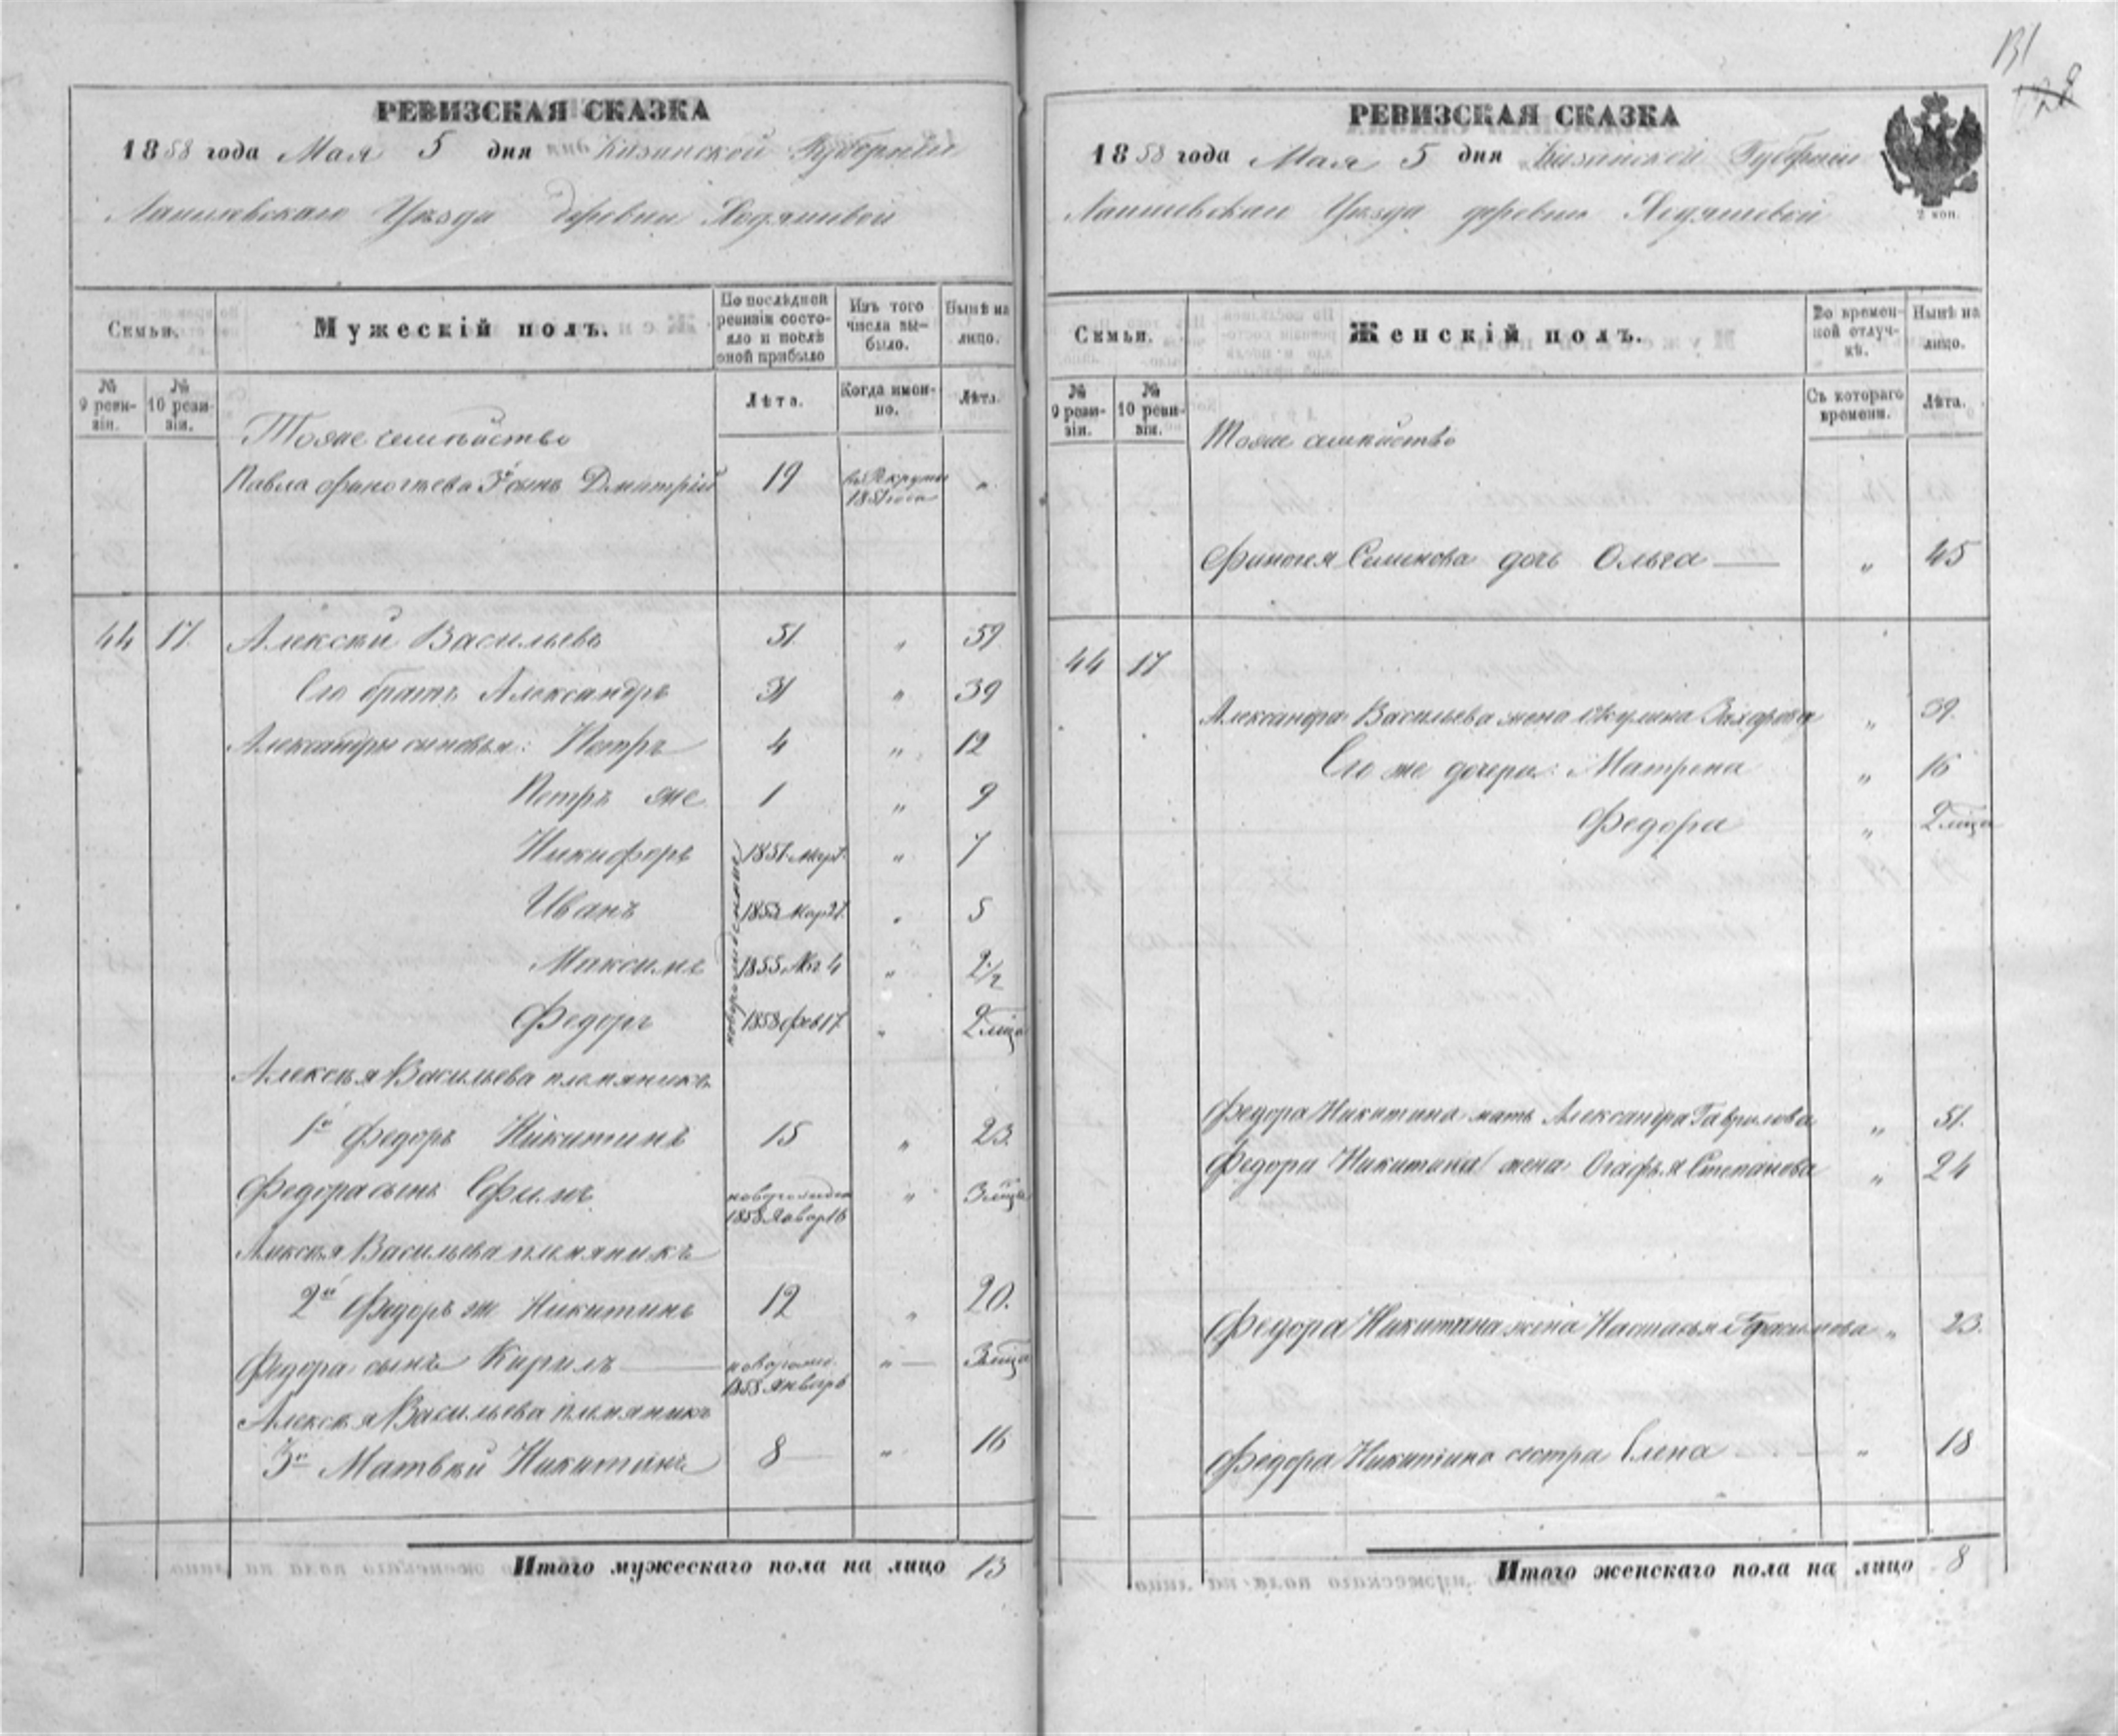 РЕВИЗСКАЯ СКАЗКА
1858 года Мая 5 дня Казанской Губерніи
Лаишевскаго Уѣзда деревни Ходяшевой
Семьи.
Мужескій полъ.
По послѣдней ревизіи состояло и послѣ оной прибыло
Изъ того числа выбыло.
Нынѣ на лицо.
№ 9 ревизіи.
№ 10 ревизіи.
Лѣта.
Когда именно.
Лѣта.
Тоже семѣйство
Павла Финогѣева 3й сынъ Дмитрій 19 въ Рекруты 1851 года "
44 17. Алексѣй Васильевъ 51. " 59
Его братъ Александръ 31 " 39
Александры сыновья: Петръ 4 " 12
Петръ же 1 " 9
новорожденные
Никифоръ 1851. Март. " 7
Иванъ 1853 Мар 27. " 5
Максимъ 1855 4 " 2 1/2
Федоръ 1858 фев 17 " 2 мѣца
Алексѣя Васильева племяникъ
1й Федоръ Никитинъ 15 " 23.
Федора сынъ Ефимъ новорожден 1858 Январ 16 " 3 мѣца
Алексѣя Васильева племяникъ
2й Федоръ ж Никитинъ 12 " 20.
Федора сынъ Кирилъ новорожд. 1858 Январь " 3 мѣца
Алексѣя Васильева племяникъ
3й Матвѣй Никитинъ 8 " 16
Итого мужескаго пола на лицо 13
131
РЕВИЗСКАЯ СКАЗКА
1858 года Мая 5 дня Казанской Губерніи
Лаишевскаго Уѣзда деревни Ходяшевой
2 коп.
Семьи.
Женскій полъ.
Во временной отлучкѣ.
Нынѣ на лицо.
№ 9 ревизіи.
№ 10 ревизіи.
Съ котораго времени.
Лѣта.
Тоже семѣйство
Семенова дочь Ольга " 45
44 17
Александра Васильева жена Окулина Захарова " 39.
Его же дочери: Матрена " 16
Федора " 2 мѣца
Федора Никитина мать Александра Гаврилова " 51.
Федора Никитина жена Огафья Степанова " 24
Федора Никитина жена Настасья Герасимова " 23.
Федора Никитина сестра Елена " 18
Итого женскаго пола на лицо 8